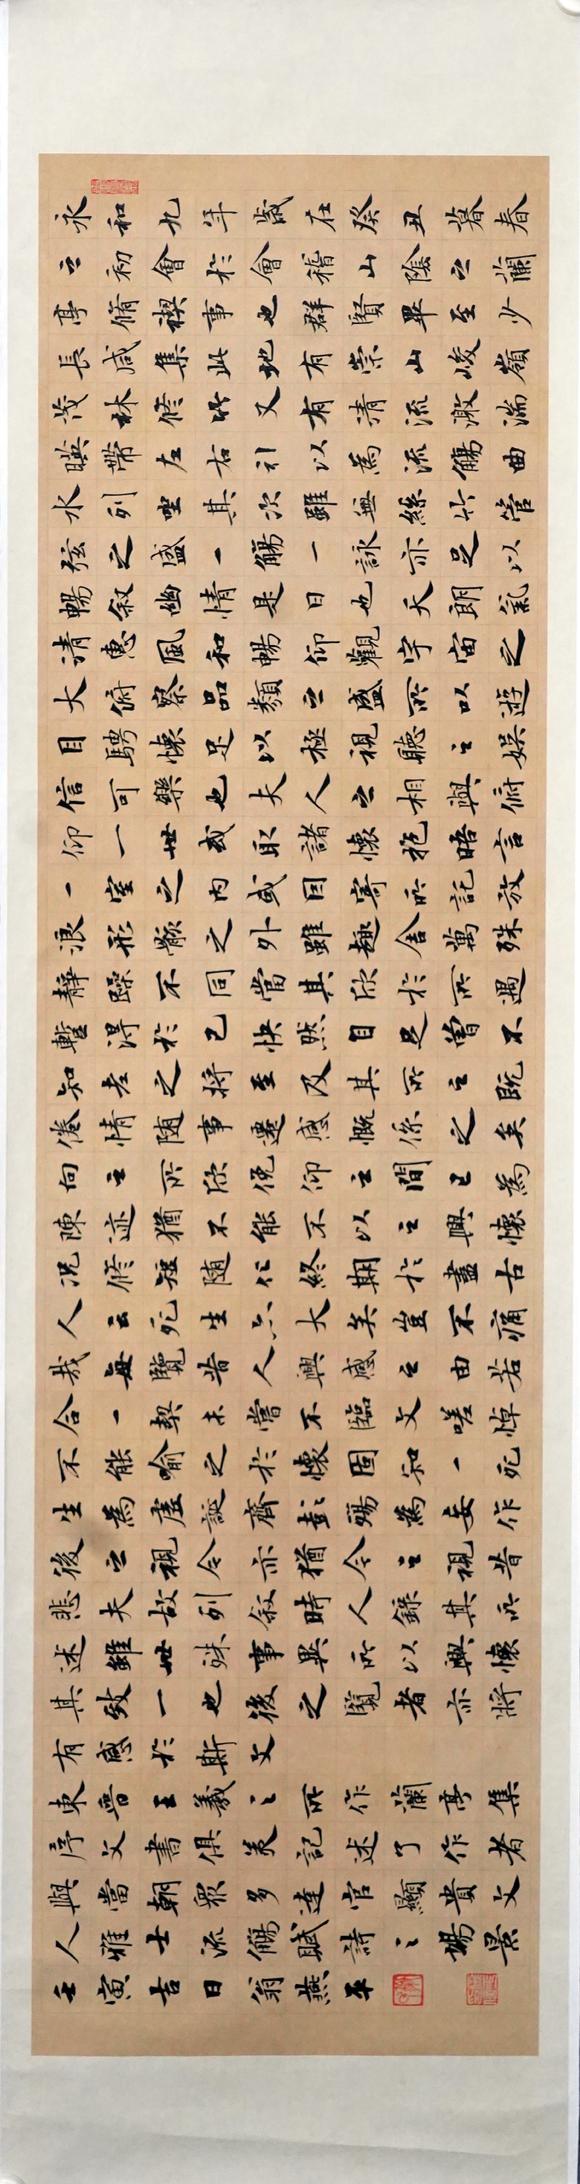 永和九年歲在癸丑暮春
之初會於會稽山陰之蘭
亭脩禊事也群賢畢至少
長咸集此地有崇山峻嶺
茂林修竹又有清流激湍
暎帶左右引以為流觴曲
水列坐其次雖無絲竹管
弦之盛一觴一詠亦足以
暢敘幽情是日也天朗氣
清惠風和暢仰觀宇宙之
大俯察品類之盛所以遊
目騁懷足以極視聽之娛
信可樂也夫人之相與俯
仰一世或取諸懷抱晤言
一室之內或因寄所託放
浪形骸之外雖趣舍萬殊
靜躁不同當其欣於所遇
暫得於己快然自足曾不
知老之將至及其所之既
倦情隨事遷感慨係之矣
向之所欣俛仰之間已為
陳迹猶不能不以之興懷
況修短隨化終期於盡古
人云死生亦大矣豈不痛
哉每覽昔人興感之由若
合一契未嘗不臨文嗟悼
不能喻之於懷固知一死
生為虛誕齊彭殤為妄作
後之視今亦猶今之視昔
悲夫故列敘時人錄其所
述雖世殊事異所以興懷
其致一也後之覽者亦將
有感於斯文
東晉王羲之所作蘭亭集
序文書俱美記述了作者
與當朝眾多達官顯貴文
人雅士流觴賦詩之場景
壬寅吉日翁燕平